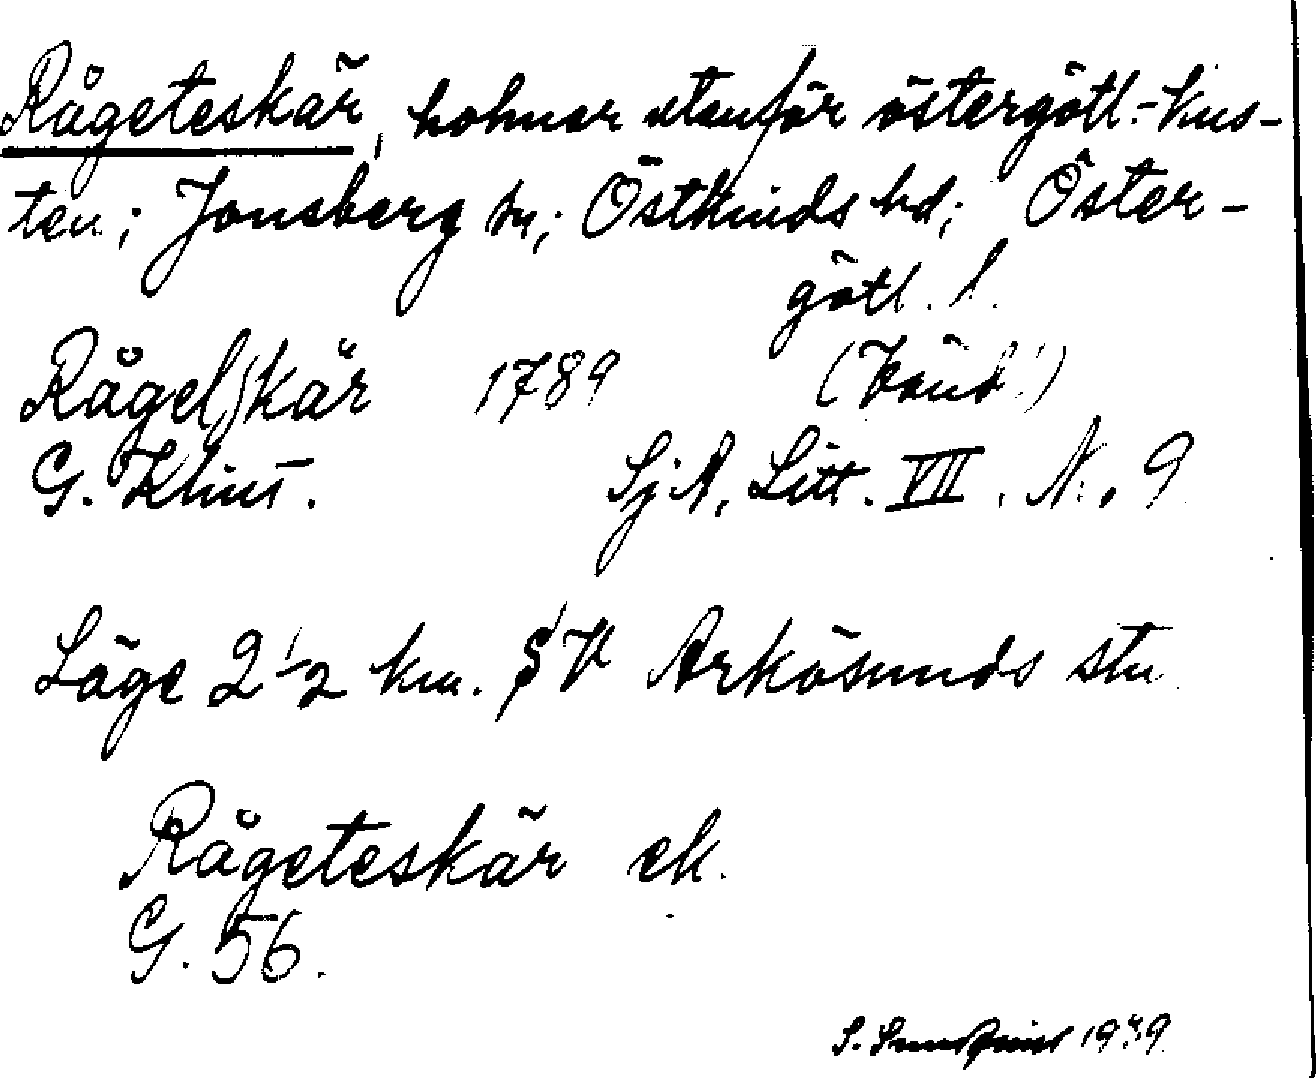 Rågeteskär, holmar utanför östergötl.-kus-
ten; Jonsberg sn; Östkinds hd; Öster-
götl. l.
Rågelskär 1789
G. Klint. SjA, Litt. VII. N:. 9
Läge 2 1/2 km. SV Arkösunds stn
Rågeteskär ek.
G. 56.
S. Sundqvist